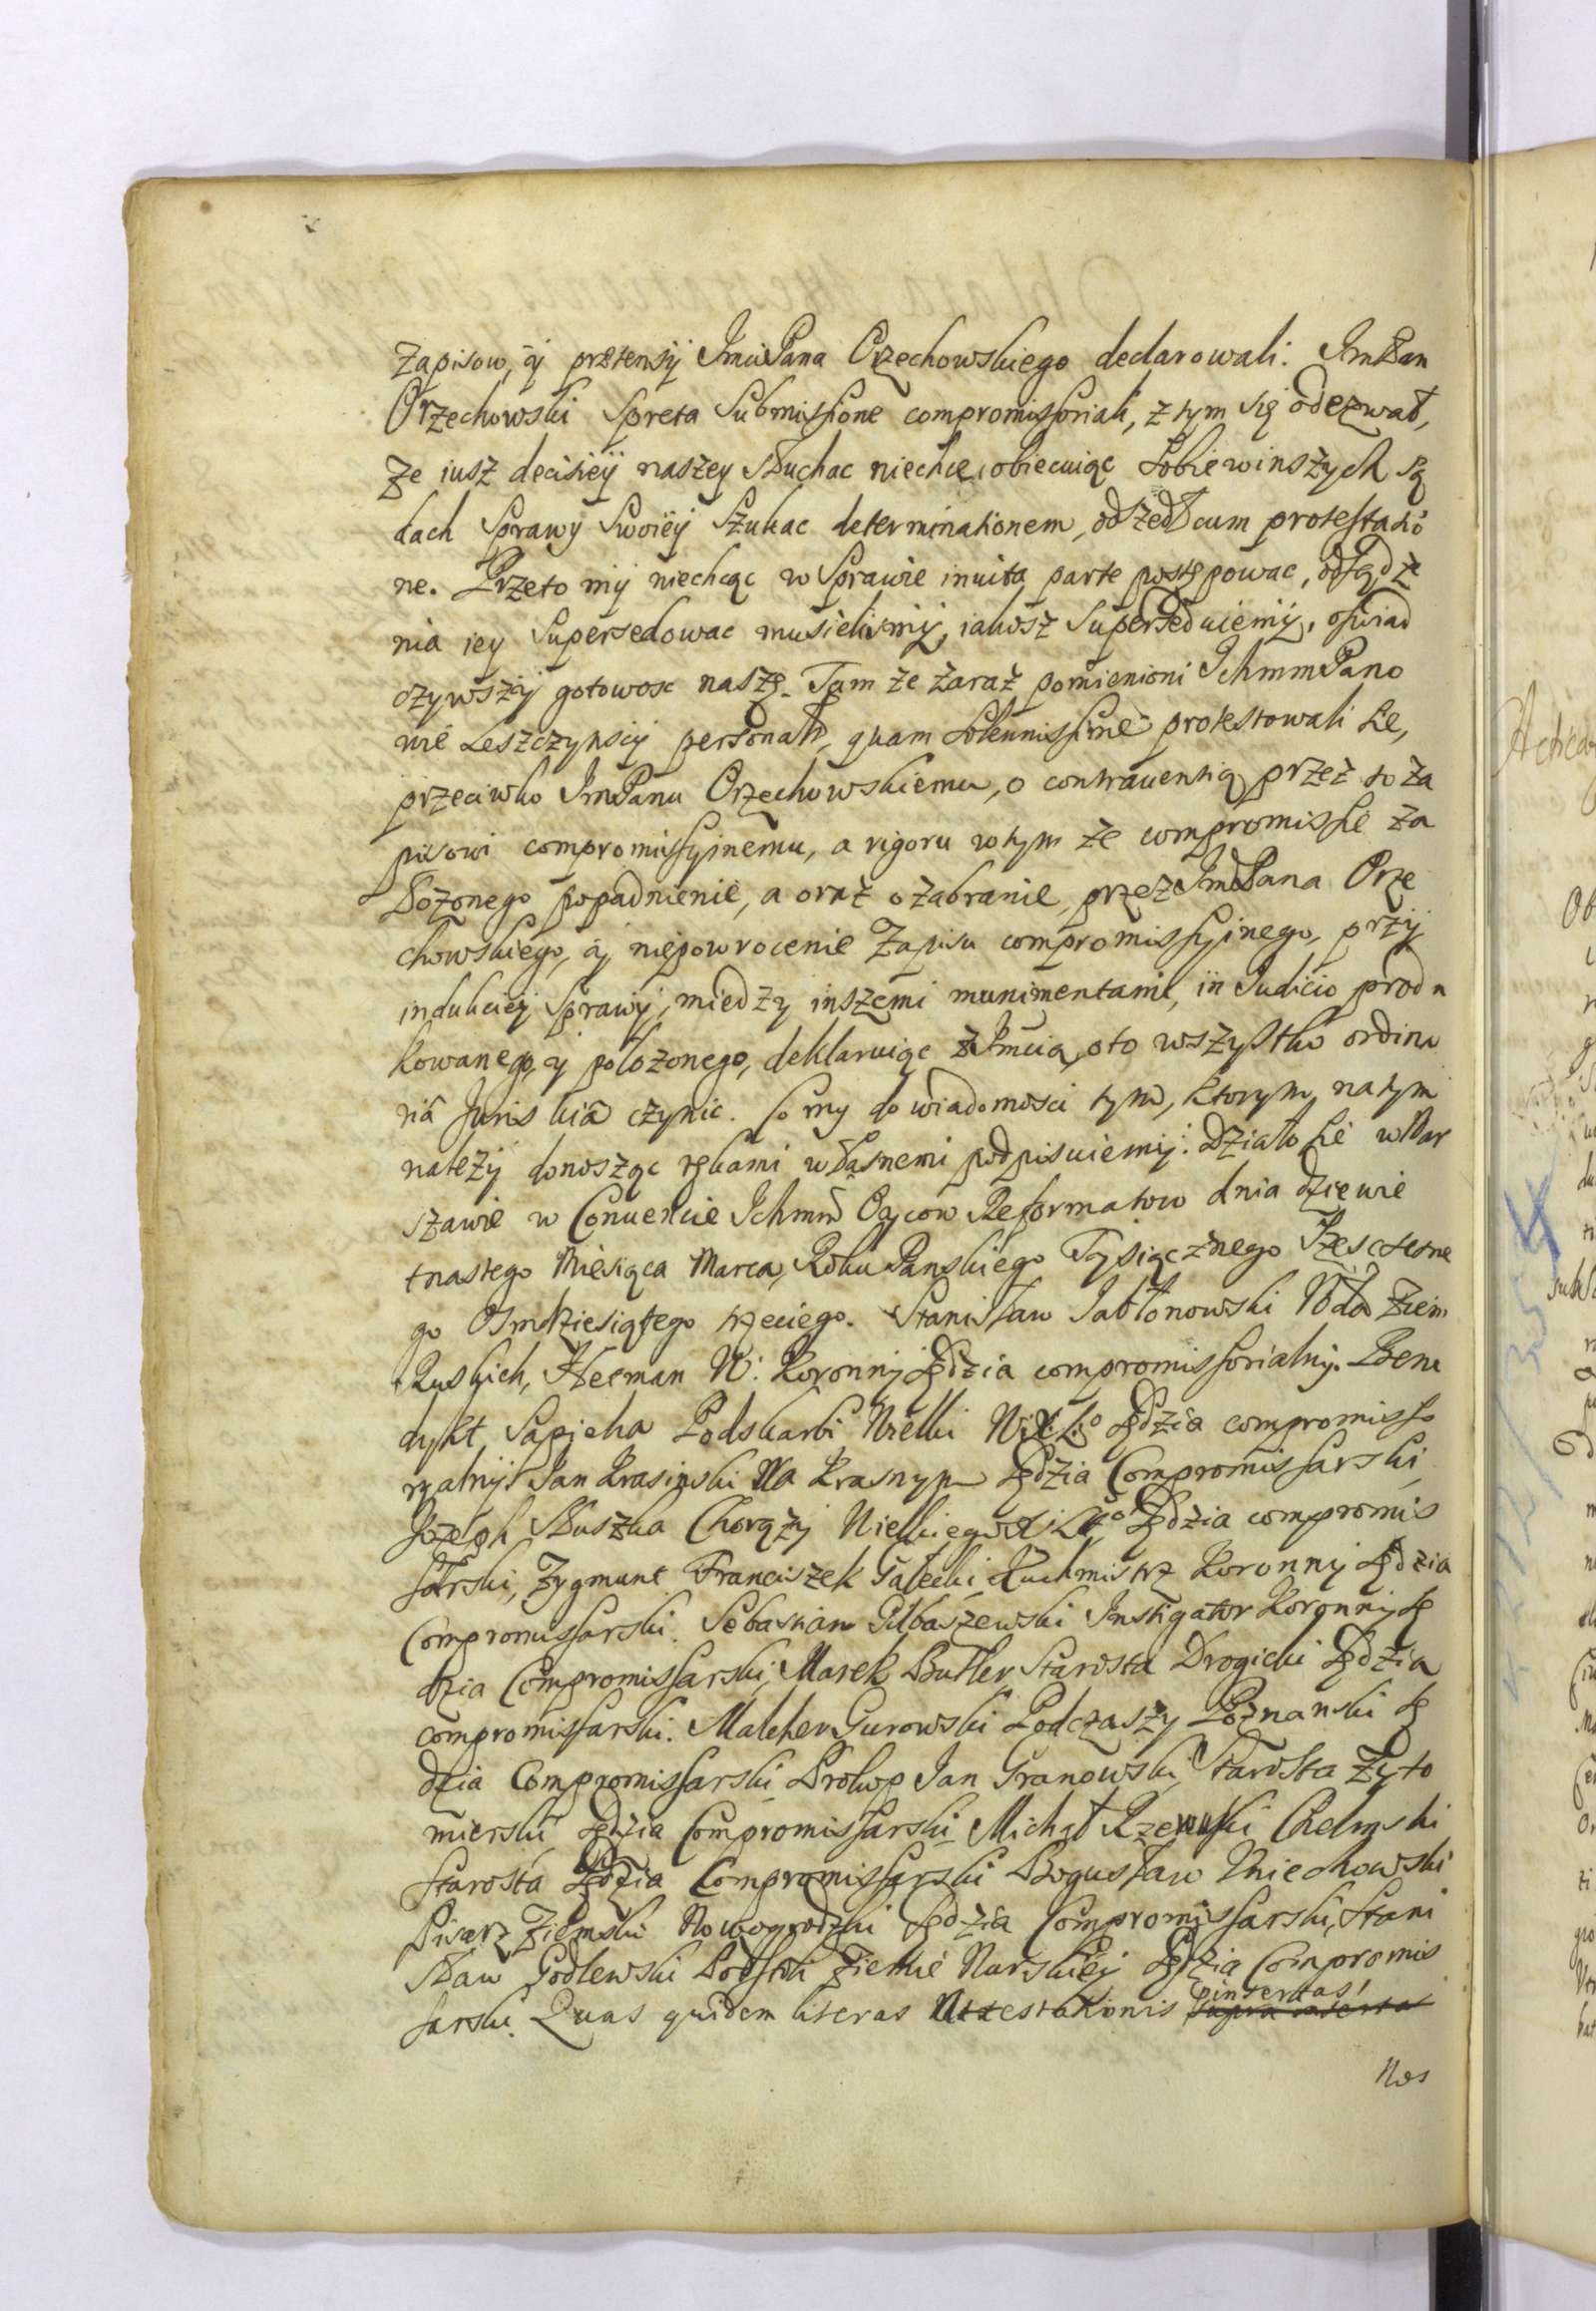 Zapisow, ÿ prætensÿ Jmci Pana Orzechowskiego declarowali. Jm Pan
Orzechowski Spreta Submissione compromissoriali, z tym się odezwał,
że iusz decisieÿ naszey słuchac niechce, obiecuiąc Sobie w inszych Są
dach Sprawy Swoieÿ Szukac determinationem, odszedł cum protestatio
ne. Przeto mÿ niechcąc w Sprawie inuita parte postępowac, odsądze
nia iey Supersedowac musieliśmÿ, iakosz Supersedúiemÿ, ośwíad
czywszÿ gotowosc naszę. Tam że zaraz pomienioni Ichmm Pano
wie Leszczynscÿ personalr, quam Solennissime protestowali Se,
przeciwko Jm Panu Orzechowskiemu, o contrauentią przez to za
pisowi compromissÿinemu, a rigoru w tym że compromissie za
łożonego popadnienie, a oraz o zabranie, przez Jm Pana Orze
chowskiego, ÿ niepowrocenie Zapisu compromissÿinego, przÿ
indukcieÿ Sprawÿ, miedzy inszemi munimentami, in Iudicio produ
kowanego, ÿ położonego, deklaruiąc z Jmcią, oto wszystko ordina
ria Juris via czynic. Co my do wiadomosci tym, ktorym na tym
nalezÿ donosząc rękami własnemi podpisuiemÿ. Działo Sie w War
szawie w Conuencie Ichmm Oycow Reformatow dnia dziewie
tnastego Miesiąca Marca, Roku Panskiego Tysiącznego Szescsetne
go Osmdziesiątego trzeciego. Stanisław Jabłonowski Wda Ziem
Ruskich, Hetman W: Koronnÿ Sędzia compromissorialnÿ. Bene
dykt Sapieha Podskarbi Wielki W. X. L. Sędzia compromisso
ryalnÿ. Jan Krasinski Na Krasnym Sędzia Compromissarski,
Jozeph Słuszka Chorązÿ Wielkiego X. L. Sędzia compromis
sarski, Zygmunt Franciszek Gałecki Kuchmistrz Koronnÿ Sędzia
Compromissarski. Sebastian Gilbaszewski Instigator Koronnÿ Sę
dzia Compromissarski, Marek Butler Starosta Drogicki Sędzia
compromissarski. Malcher Gurowski Podczaszy Poznanski Sę
dzia Compromissarski Prokop Jan Granowski Starosta Żyto
mierski Sędzia Compromissarski Michał Rzewuski Chelmski
Starosta Sędzia Compromissarski Bogusław Uniechowski
Pisarz Ziemski Nowogrodzki Sędzia Compromissarski, Stani
sław Godlewski Podstoli Ziemie Nurskieÿ Sędzia Compromis
sarski. Quas quidem literas Attestationis insertas
supra insertas
Nos